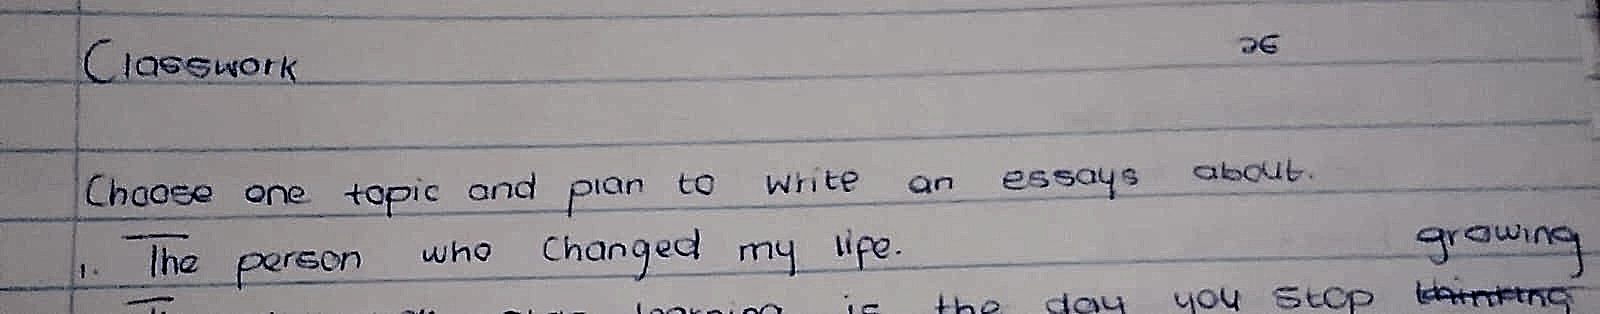 Classwork
Choose one topic and plan to write an essays about.
1. The person who changed my life.
growing
learning is the day you stop thinking